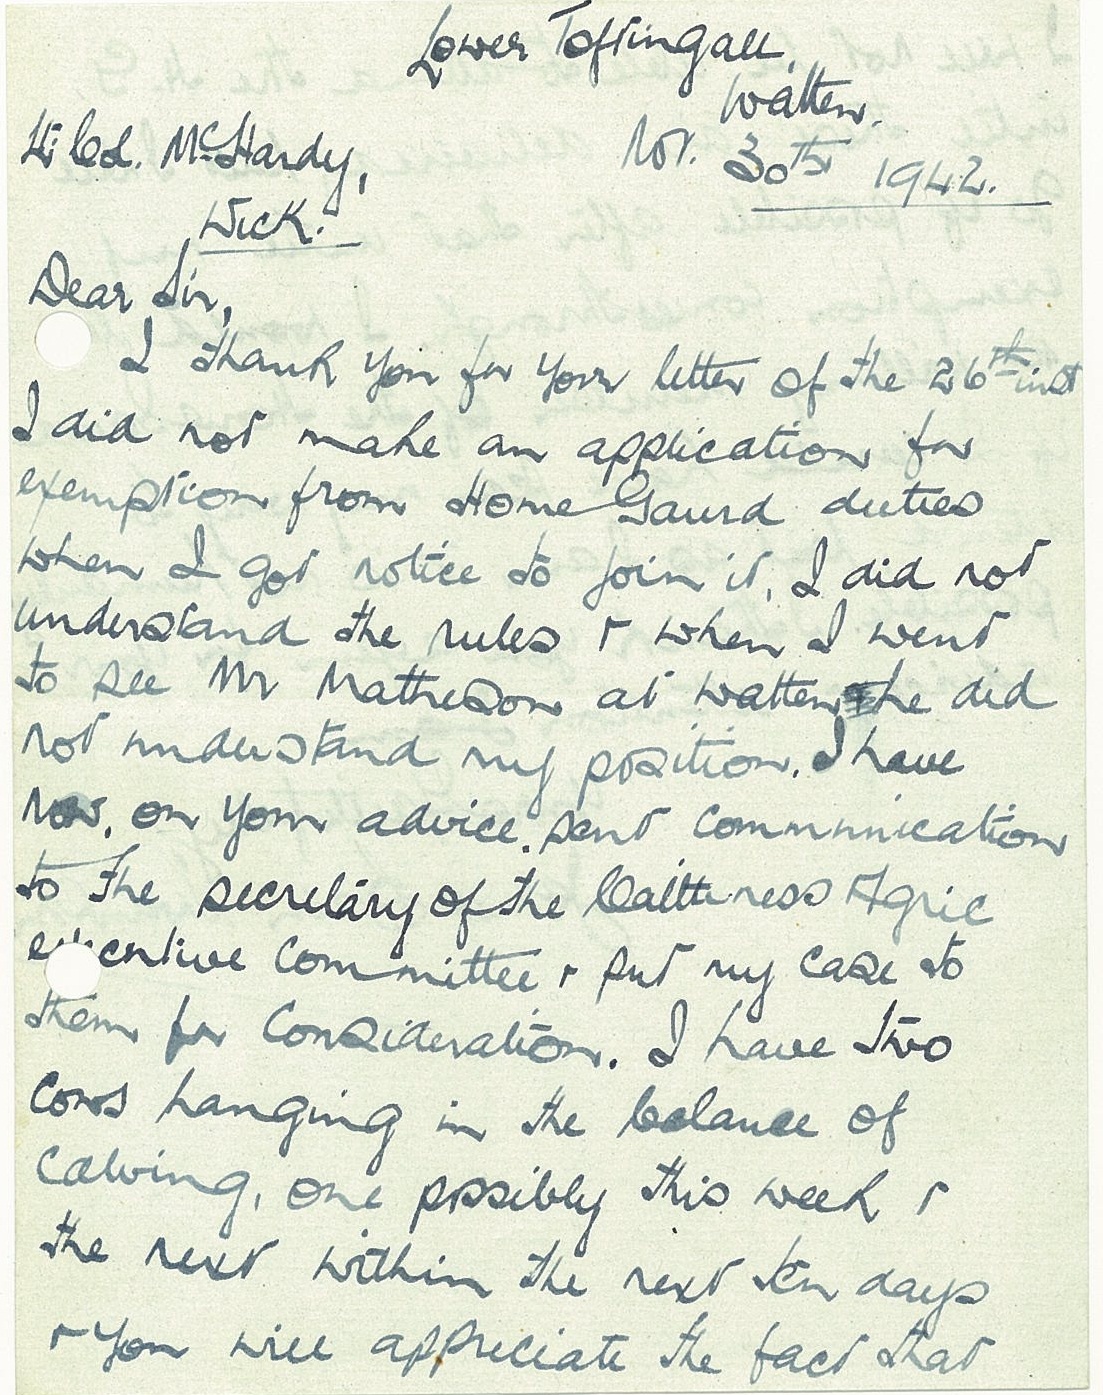 Lower Toftingall,
Watten.
Lt Col. McHardy,
Nov. 30th 1942.
Wick.
Dear Sir,
I thank you for your letter of the 26th inst
I did not make an application for
exemption from Home Gaurd duties
when I got notice to join it, I did not
understand the rules & when I went
to see Mr Matheson at Watten he did
not understand my position. I have
now, on your advice, sent communication
to the secretary of the Caithness Agric
executive Committee & put my case to
them for Consideration. I have two
Cows hanging in the balance of
Calving, one possibly this week &
the next within the next ten days
& you will appreciate the fact that